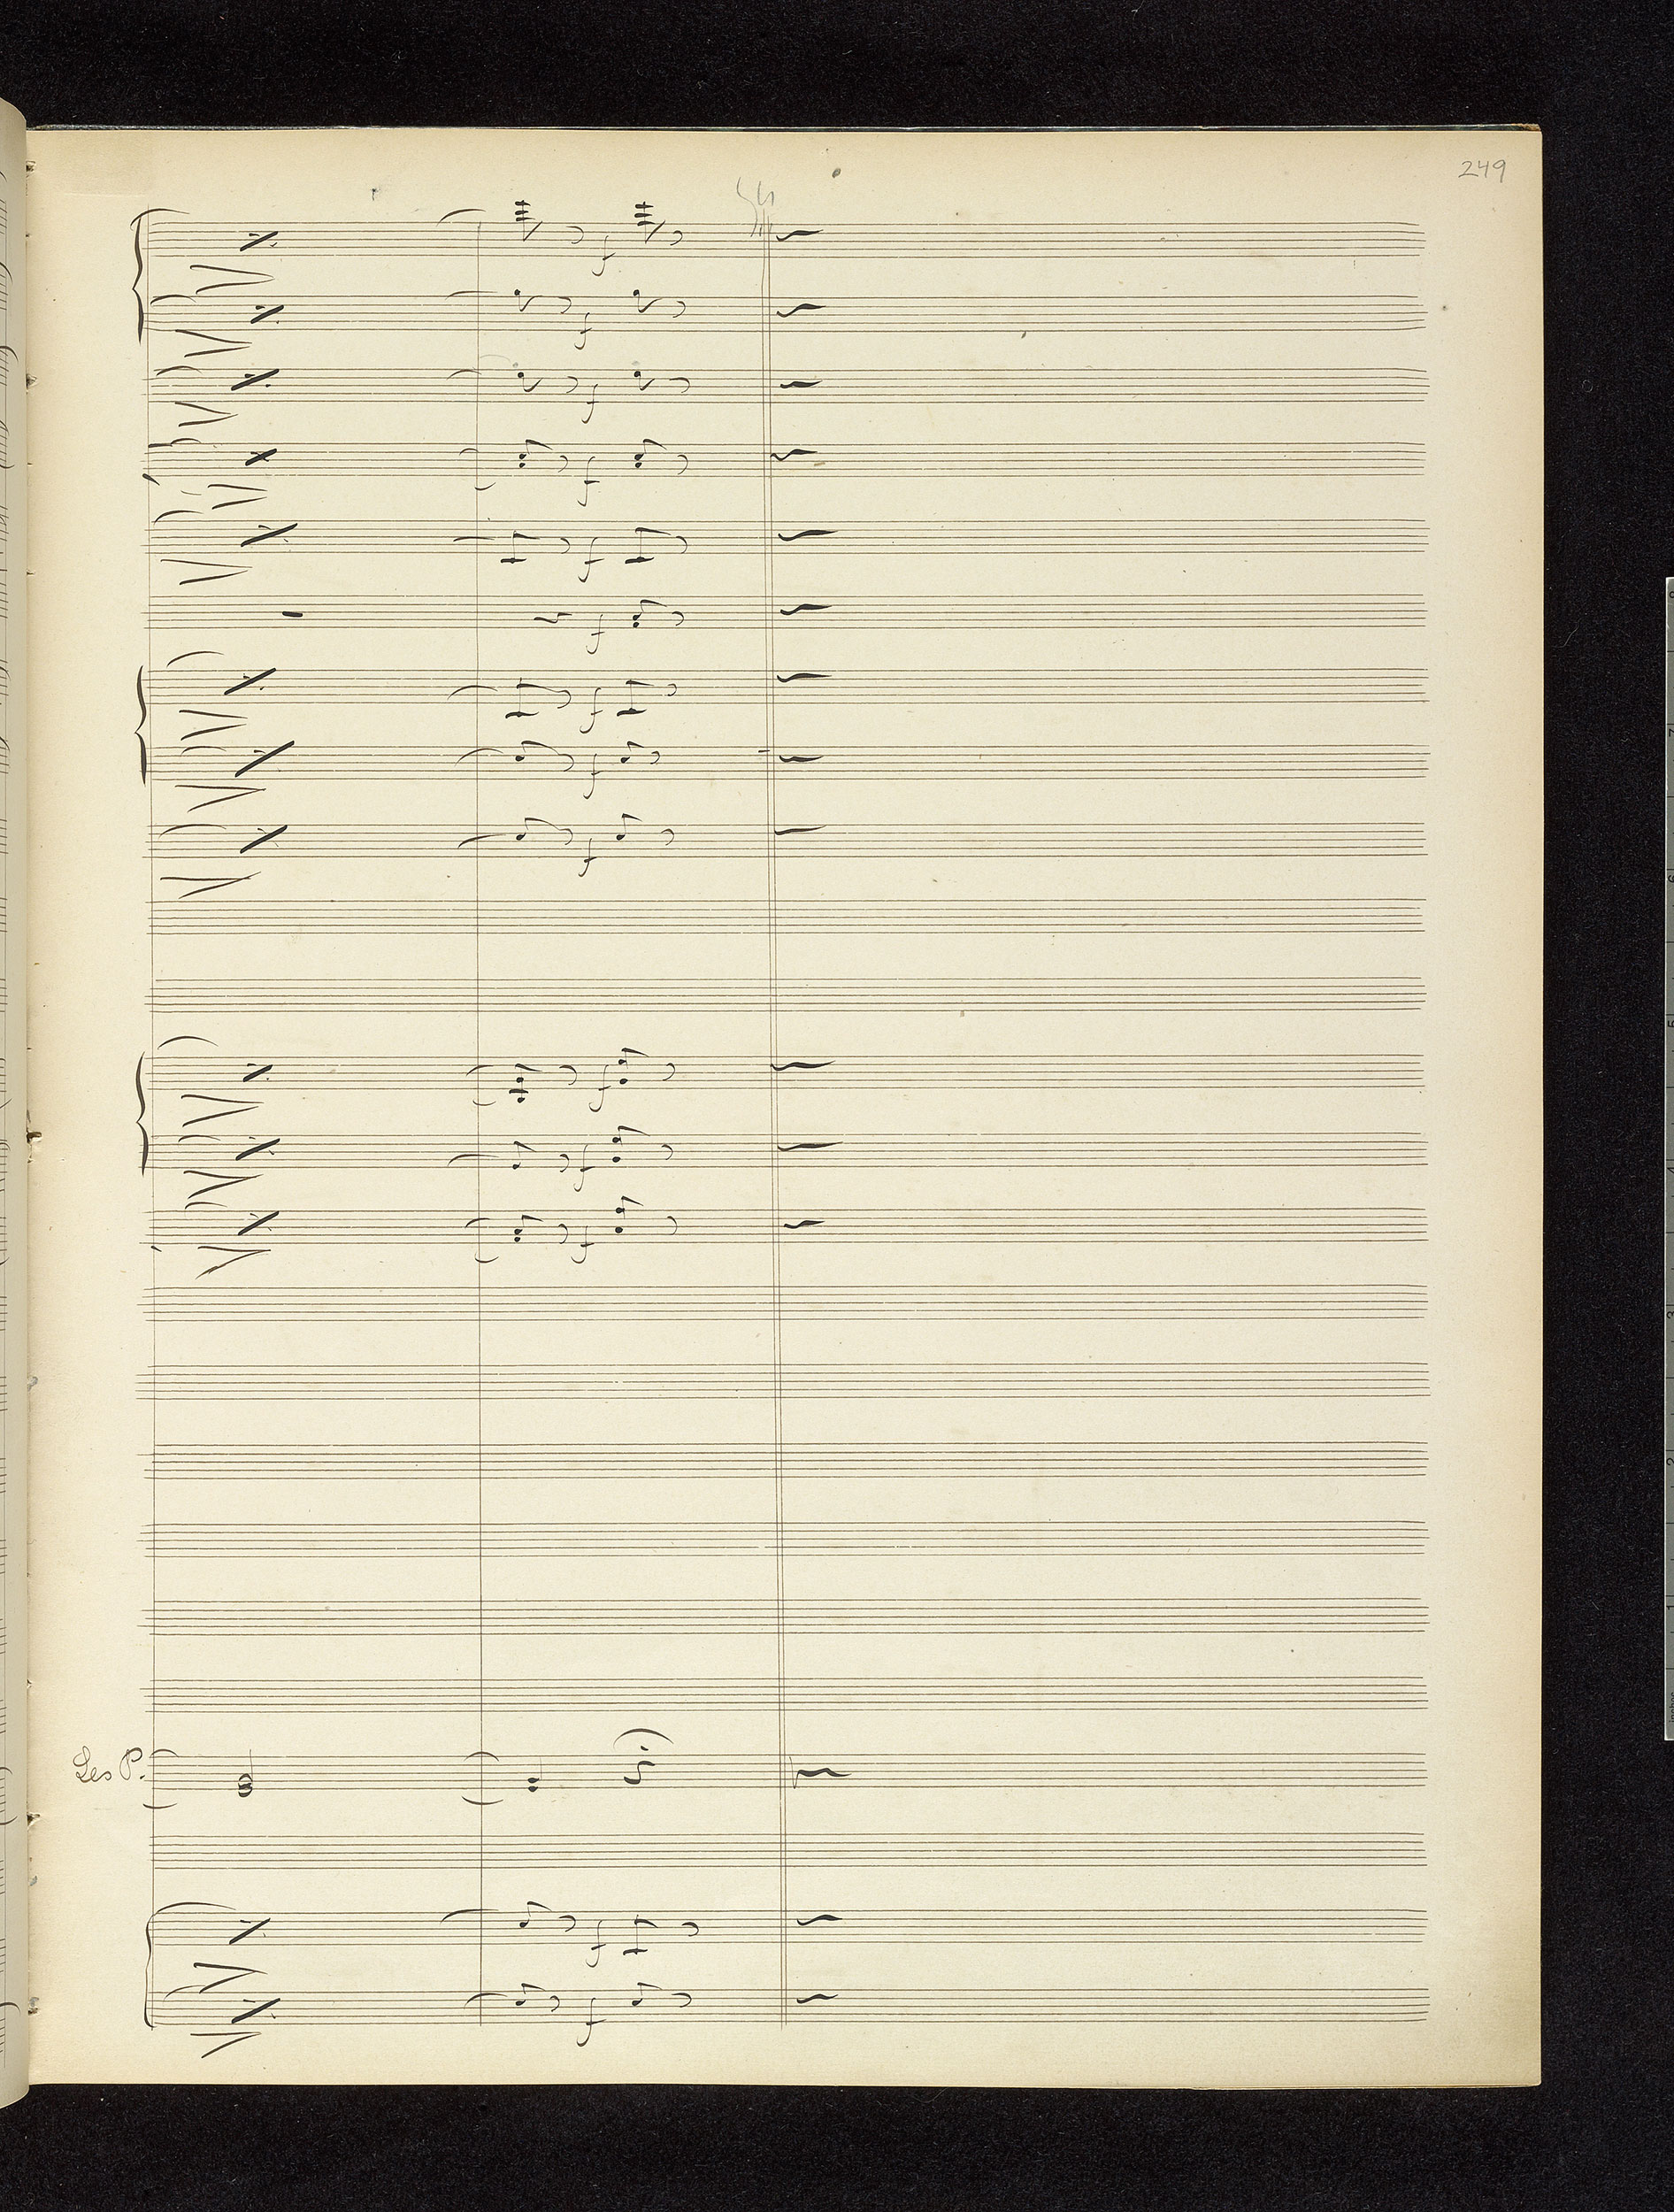 249
f
f
f
f
f
f
f
f
f
f
f
f
Les P.
f
f